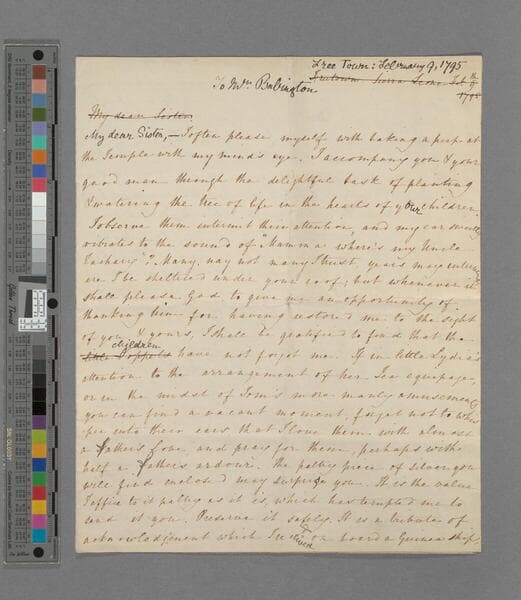 Free Town: February 9, 1795
Freetown Sierra Leone Feb 9th
1795
To Mrs Babington
My dear Sister,
My dear Sister,— I often please myself with taking a peep at
the Temple with my mind's eye. I accompany you & your
good man through the delightful task of planting
& watering the tree of life in the hearts of your children.
I observe them intermit their attention, and my ear smartly
vibrates to the sound of "Mamma where's my Uncle
Zachary"? Many, nay not many I trust, years may intervene
ere I be sheltered under your roof; but whenever it
shall please God to give me an opportunity of
thanking him for having restored me to the sight
of you & yours, I shall be gratified to find that the
children
have not forgot me. If in little Lydia's
attention to the arrangement of her Tea equipage,
or in the midst of Tom's more manly amusements
you can find a vacant moment, forget not to whis
per into their ears that I love them with almost
a father's love, and pray for them, perhaps with
half a father's ardour. The paltry piece of silver you
will find enclosed may surprise you. It is the value
I affix to it paltry as it is, which has tempted me to
send it you. Preserve it safely. It is a tribute of
acknowledgement which I received on board a Guinea ship,